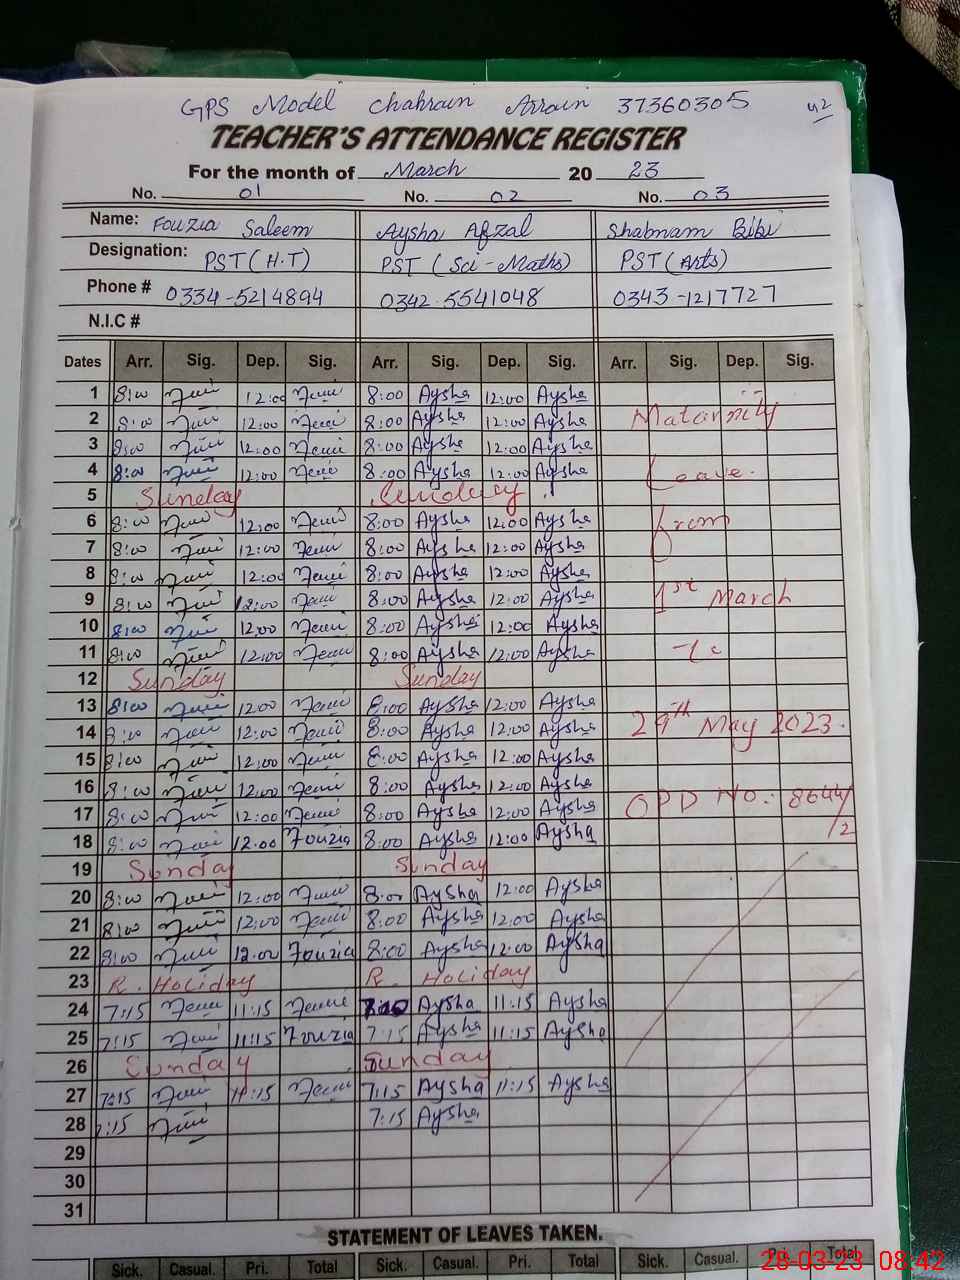 GPS Model Chahrain Arrain 37360305 42
TEACHER'S ATTENDANCE REGISTER
For the month of March 20 23
No. 01 No. 02 No. 03
Name: Fouzia Saleem Aysha Afzal Shabnam Bibi
Designation: PST (H.T) PST (Sci-Maths) PST (Arts)
Phone # 0334-5214894 0342-5541048 0343-1217727
N.I.C #
Dates Arr. Sig. Dep. Sig. Arr. Sig. Dep. Sig. Arr. Sig. Dep. Sig.
1 8:00 12:00 8:00 Aysha 12:00 Aysha
2 8:00 12:00 8:00 Aysha 12:00 Aysha Maternity
3 8:00 12:00 8:00 Aysha 12:00 Aysha
4 8:00 12:00 8:00 Aysha 12:00 Aysha Leave.
5 Sunday Sunday
6 8:00 12:00 8:00 Aysha 12:00 Aysha from
7 8:00 12:00 8:00 Aysha 12:00 Aysha
8 8:00 12:00 8:00 Aysha 12:00 Aysha
9 8:00 12:00 8:00 Aysha 12:00 Aysha 1st March
10 8:00 12:00 8:00 Aysha 12:00 Aysha
11 8:00 12:00 8:00 Aysha 12:00 Aysha to
12 Sunday Sunday
13 8:00 12:00 8:00 Aysha 12:00 Aysha
14 8:00 12:00 8:00 Aysha 12:00 Aysha 29th May 2023.
15 8:00 12:00 8:00 Aysha 12:00 Aysha
16 8:00 12:00 8:00 Aysha 12:00 Aysha
17 8:00 12:00 8:00 Aysha 12:00 Aysha OPD No: 8644/2
18 8:00 12:00 Fouzia 8:00 Aysha 12:00 Aysha
19 Sunday Sunday
20 8:00 12:00 8:00 Aysha 12:00 Aysha
21 8:00 12:00 8:00 Aysha 12:00 Aysha
22 8:00 12:00 Fouzia 8:00 Aysha 12:00 Aysha
23 R. Holiday R. Holiday
24 7:15 11:15 Aysha 11:15 Aysha
25 7:15 11:15 Fouzia 7:15 Aysha 11:15 Aysha
26 Sunday Sunday
27 7:15 11:15 7:15 Aysha 11:15 Aysha
28 7:15 7:15 Aysha
29
30
31
STATEMENT OF LEAVES TAKEN.
Sick. Casual. Pri. Total Sick. Casual. Pri. Total Sick. Casual. Total
28-03-23 08:42